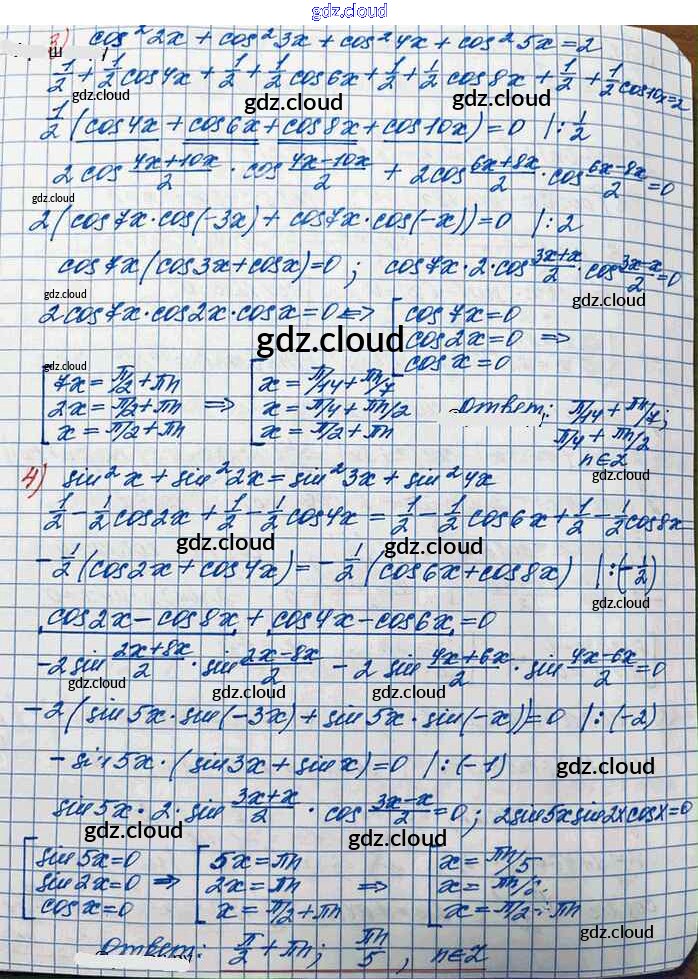 gdz.cloud
3) cos²2x + cos²3x + cos²4x + cos²5x = 2
1/2 + 1/2 cos4x + 1/2 + 1/2 cos6x + 1/2 + 1/2 cos8x + 1/2 + 1/2 cos10x = 2
gdz.cloud
gdz.cloud
1/2 (cos4x + cos6x + cos8x + cos10x) = 0 |: 1/2
2cos (4x+10x)/2 · cos (4x-10x)/2 + 2cos (6x+8x)/2 · cos (6x-8x)/2 = 0
gdz.cloud
gdz.cloud
2(cos7x·cos(-3x) + cos7x·cos(-x)) = 0 |: 2
cos7x(cos3x + cosx) = 0 ; cos7x·2·cos (3x+x)/2 · cos (3x-x)/2 = 0
gdz.cloud
gdz.cloud
2cos7x·cos2x·cosx = 0 <=> [ cos7x = 0
cos2x = 0 =>
cosx = 0
gdz.cloud
gdz.cloud
[ 7x = π/2 + πn => [ x = π/14 + πn/7
2x = π/2 + πn x = π/4 + πn/2
x = π/2 + πn x = π/2 + πn
Ответ: π/14 + πn/7 ;
π/4 + πn/2
n∈Z
4) sin²x + sin²2x = sin²3x + sin²4x
gdz.cloud
1/2 - 1/2 cos2x + 1/2 - 1/2 cos4x = 1/2 - 1/2 cos6x + 1/2 - 1/2 cos8x
gdz.cloud
gdz.cloud
-1/2 (cos2x + cos4x) = -1/2 (cos6x + cos8x) |:(-1/2)
gdz.cloud
cos2x - cos8x + cos4x - cos6x = 0
-2sin (2x+8x)/2 · sin (2x-8x)/2 - 2 sin (4x+6x)/2 · sin (4x-6x)/2 = 0
gdz.cloud
gdz.cloud
gdz.cloud
-2(sin5x·sin(-3x) + sin5x·sin(-x)) = 0 |:(-2)
-sin5x·(sin3x + sinx) = 0 |:(-1)
gdz.cloud
sin5x·2·sin (3x+x)/2 · cos (3x-x)/2 = 0 ; 2sin5xsin2xcosx = 0
gdz.cloud
gdz.cloud
[ sin5x = 0 [ 5x = πn [ x = πn/5
sin2x = 0 => 2x = πn => x = πn/2
cosx = 0 x = π/2 + πn x = π/2 + πn
gdz.cloud
Ответ: π/2 + πn ; πn/5 , n∈Z